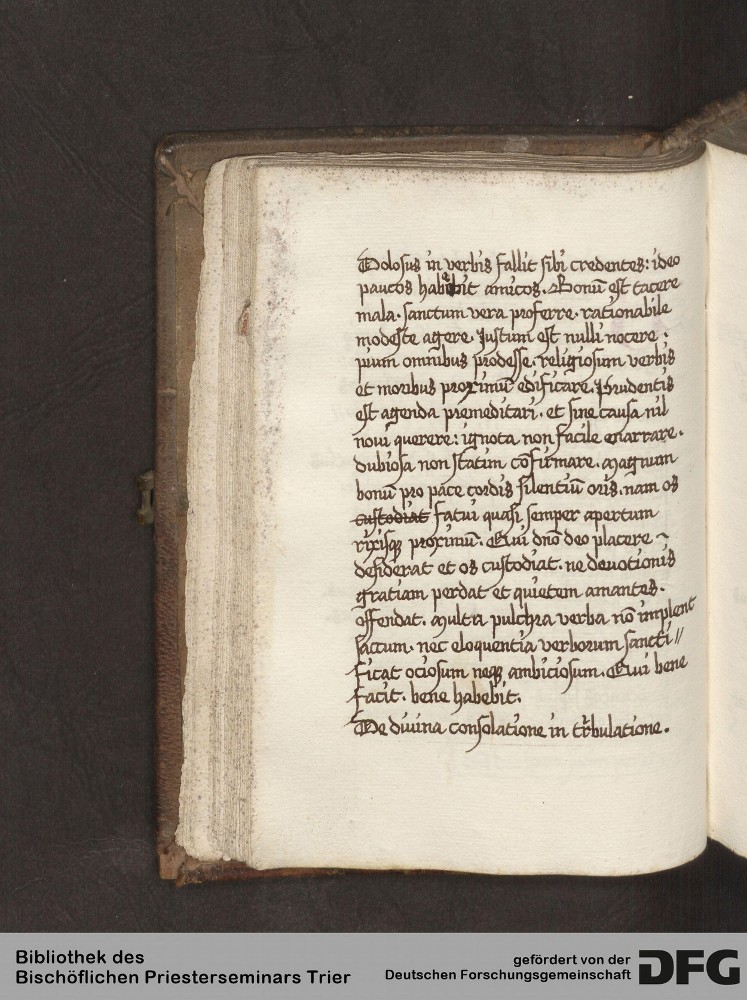 Dolosus in verbis fallit sibi credentes: ideo
paucos habebit amicos. Bonū est tacere
mala. sanctum vera proferre. rationabile
modeste agere. Justum est nulli nocere.
pium omnibus prodesse. religiosum verbis
et moribus proximū edificare. Prudentis
est agenda premeditari. et sine causa nil
novi querere: ignota non facile enarrare.
dubiosa non statim cōfirmare. Magnum
bonū pro pace cordis silentiū oris. nam os
custodiat fatui quasi semper apertum
proximū. Qui dn̄o deo placere
desiderat et os custodiat. ne devotionis
gratiam perdat et quietem amantes.
offendat. Multa pulchra verba nō implent
saccum. nec eloquentia verborum sancti//
ficat ociosum neqꝫ ambiciosum. Qui bene
facit. bene habebit.
De divina consolatione in tribulatione.
Bibliothek des
Bischöflichen Priesterseminars Trier
gefördert von der
Deutschen Forschungsgemeinschaft
DFG